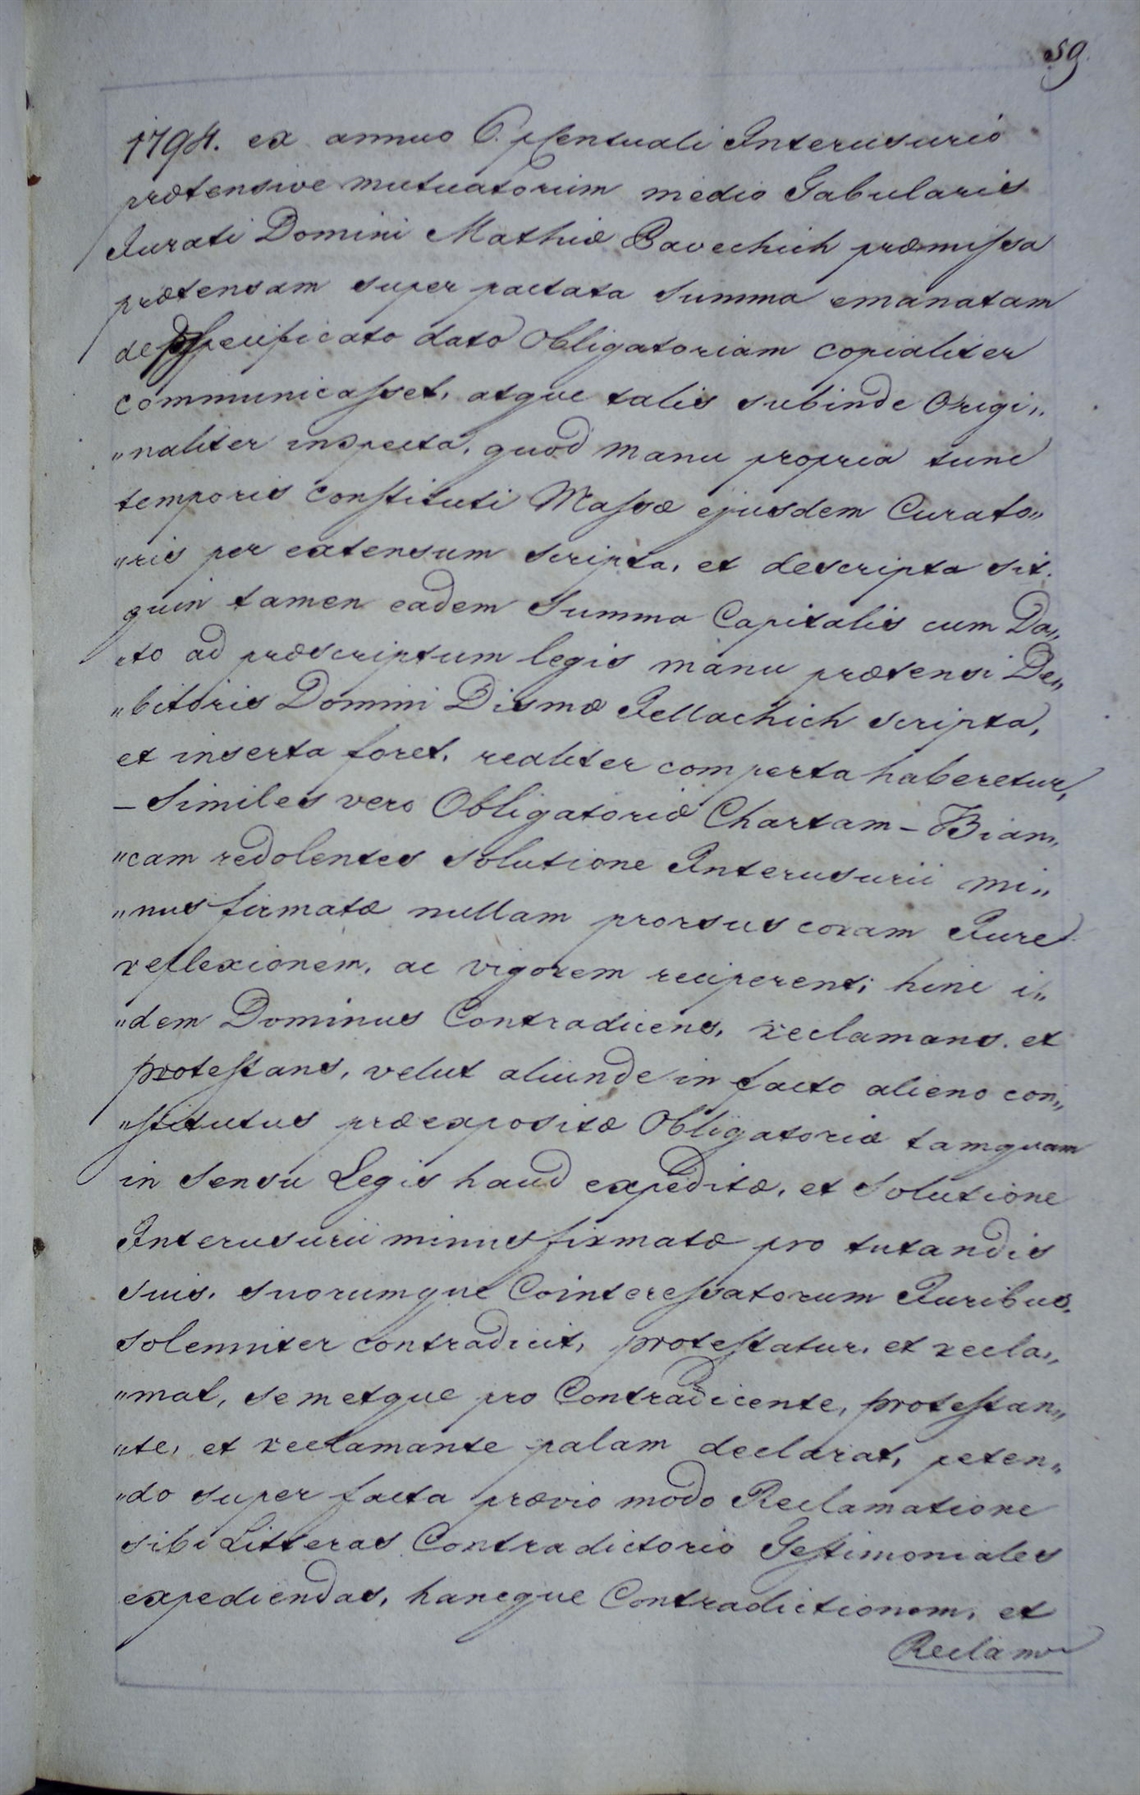 59.
1794. ex annuo 6. pcentuali Interusurio
prætensive mutuatorum medio Tabularis
Jurati Domini Mathiæ Pavechich præmissa
prætensam super pactata Summa emanatam
de specificato dato Obligatoriam copialiter
communicasset, atque talis subinde Origi„
„naliter inspecta, quod manu propria tunc
temporis constituti Massæ ejusdem Curato„
„ris per extensum scripta, et descripta sit.
quin tamen eadem Summa Capitalis cum Da„
„to ad præscriptum legis manu prætensi De„
„bitoris Domini Dismæ Jellachich scripta,
et inserta foret, realiter comperta haberetur,
– Similes vero Obligatoriæ Chartam – Bian„
„cam redolentes solutione Interusurii mi„
„nus firmatæ nullam prorsus coram Jure
reflexionem, ac vigorem reciperent; hinc i„
„dem Dominus Contradicens, reclamans. et
protestans, velut aliunde in facto alieno con„
„stitutus præexpositæ Obligatoriæ tamquam
in Sensu Legis haud expeditæ, et Solutione
Interusurii minus firmatæ pro tutandis
suis, suorumque Cointeressatorum Juribus.
solenniter contradicit, protestatur, et recla„
„mat, semetque pro Contradicente, protestan„
„te, et reclamante palam declarat, peten„
„do super facta prævio modo Reclamatione
sibi Litteras Contradictorio Testimoniales
expediendas, hancque Contradictionem, et
Reclama